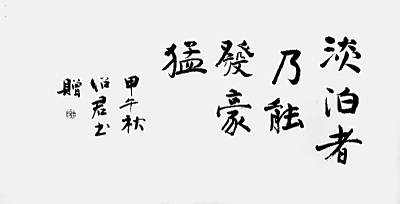 淡泊者
乃能
發豪
猛
甲午秋
伯君书
贈